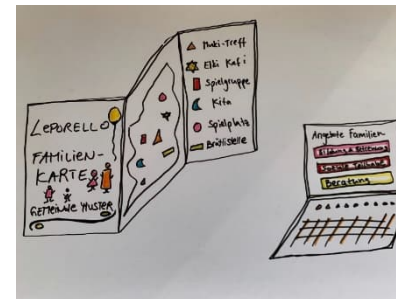 LEPORELLO
FAMILIEN-
KARTE
GEMEINDE MUSTER
Muki-Treff
Elki Kafi
Spielgruppe
Kita
Spielplatz
Angebote Familien
Soziale Teilhabe
Beratung